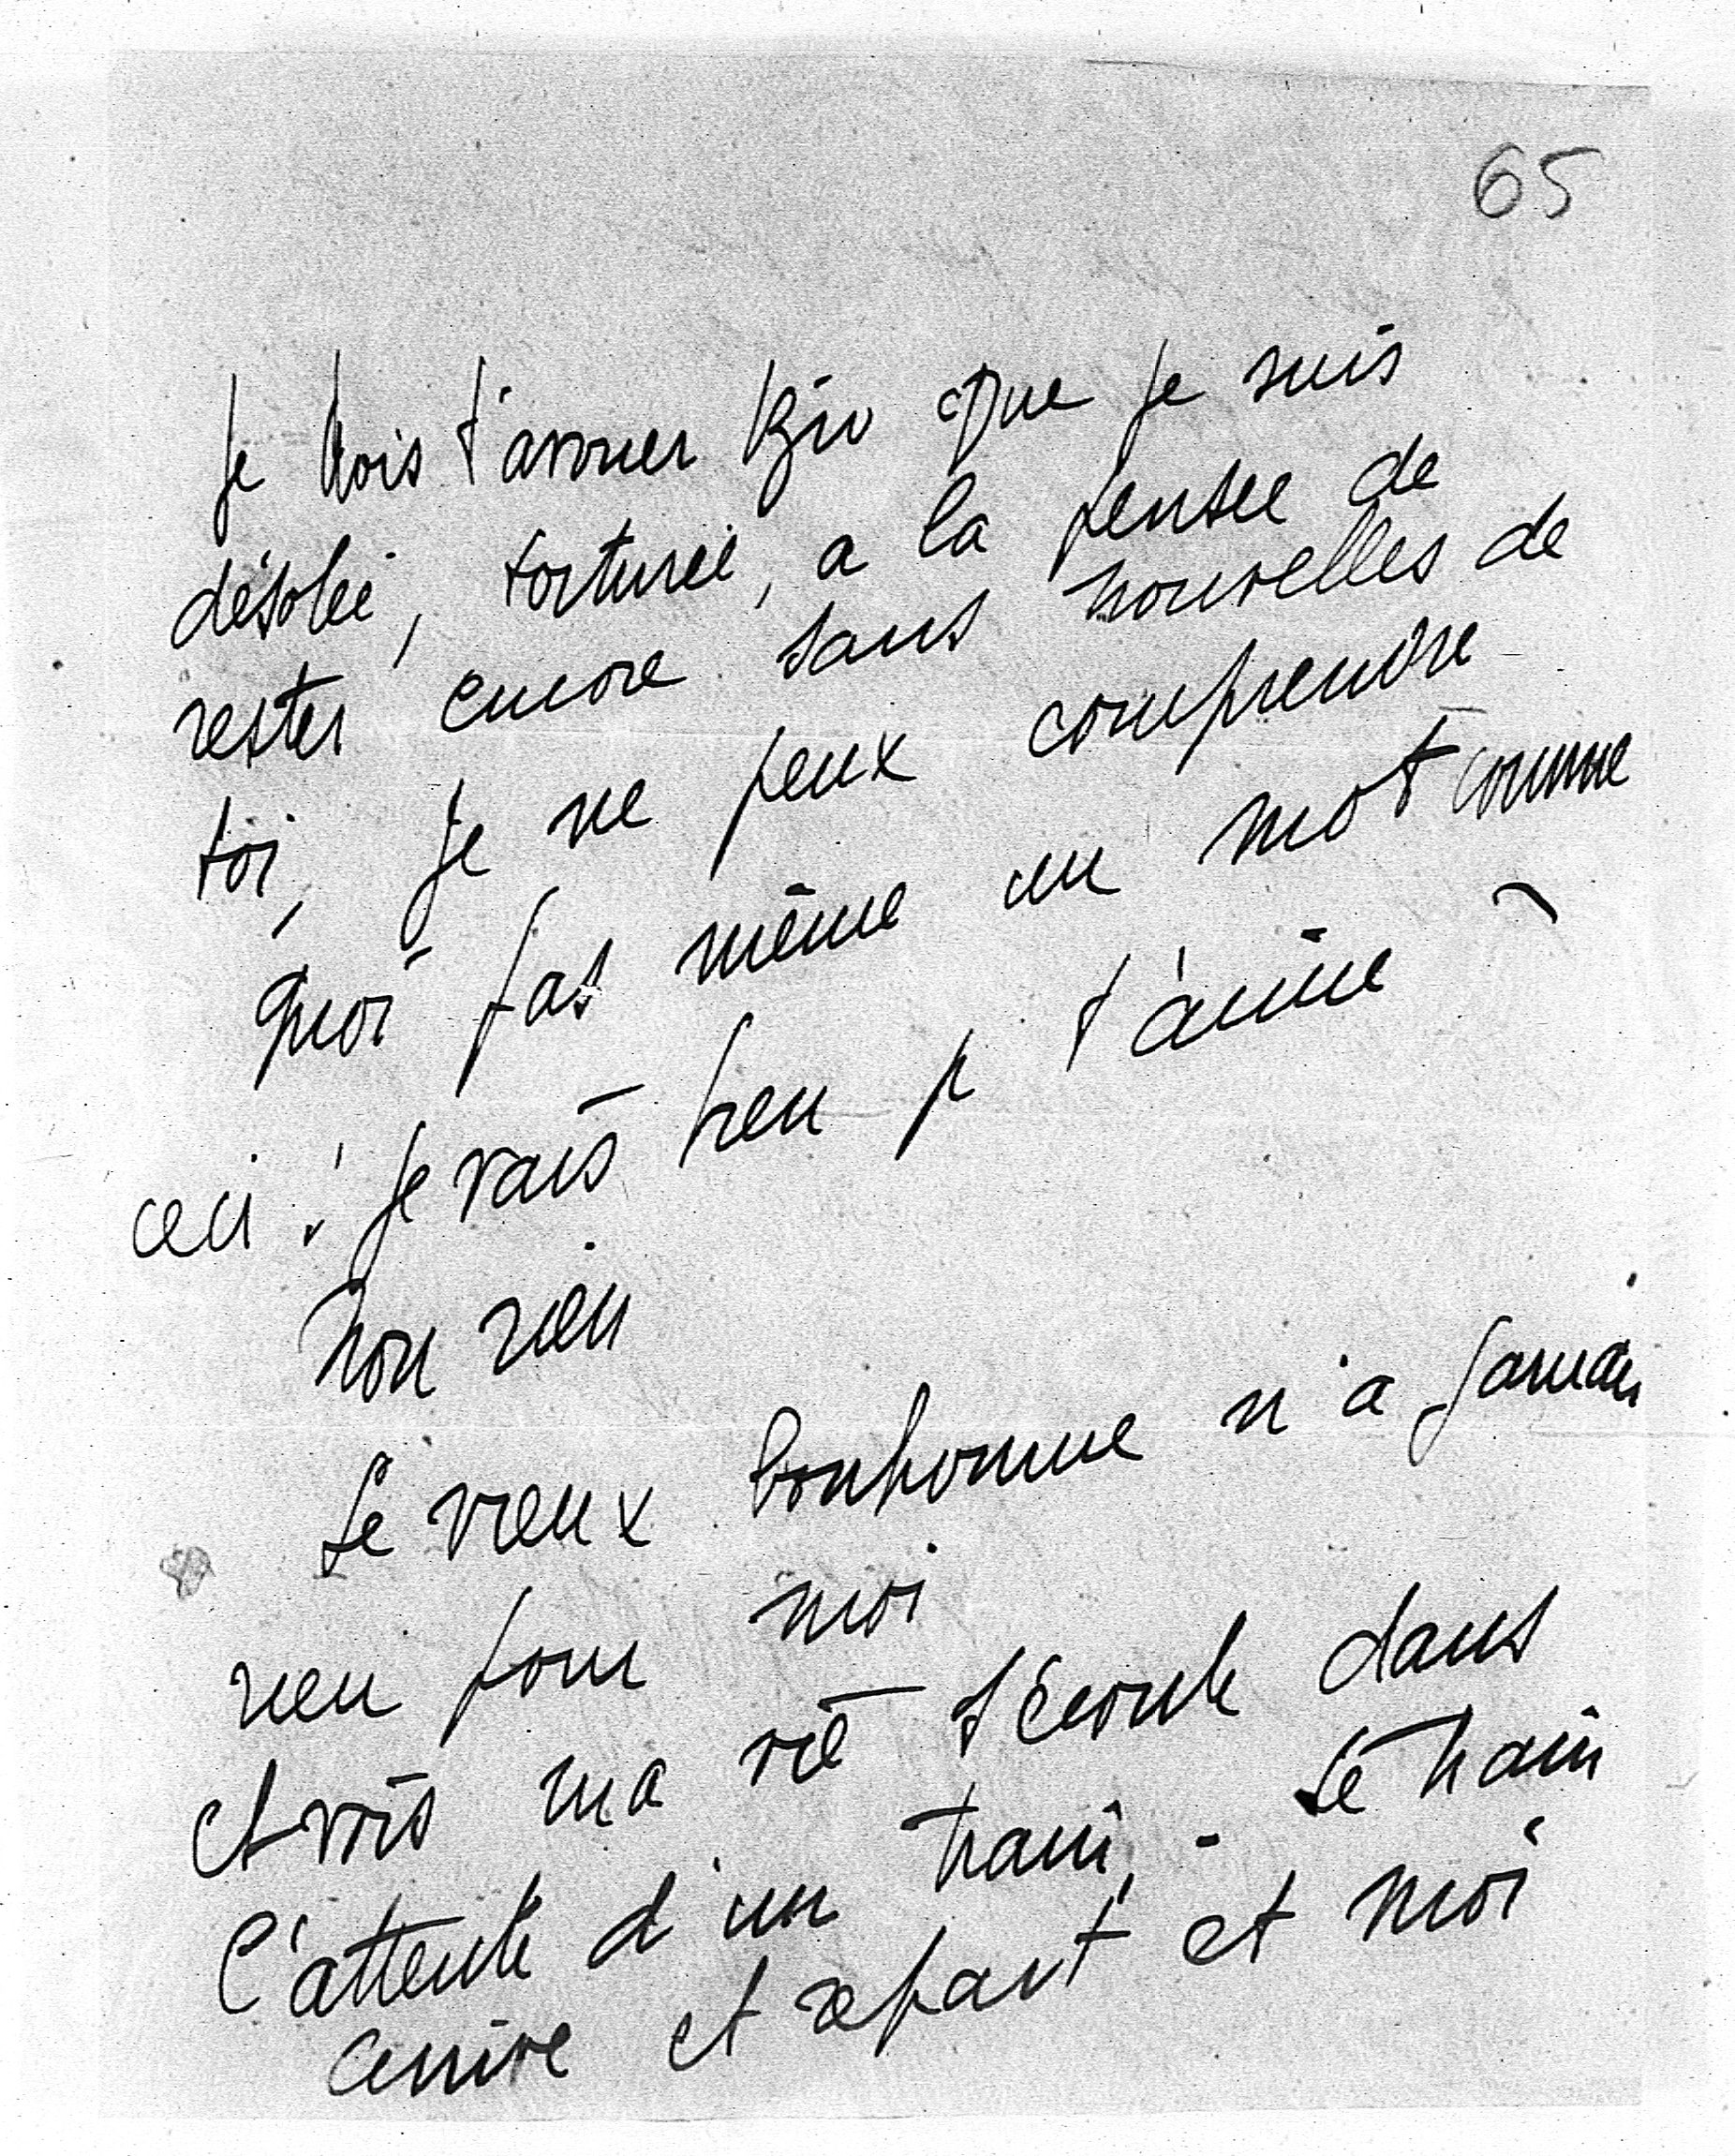 65
Je dois t'avouer Bijo que je suis
désolée, torturée, a la pensée de
rester encore sans nouvelles de
toi, je ne peux comprendre
quoi pas même un mot comme
ceci : je vais bien je t'aime
Non rien
Le vieux bonhomme n'a jamais
rien pour moi
et vois ma vie s'écoule dans
l'attente d'un train, - Le train
arrive et repart et moi